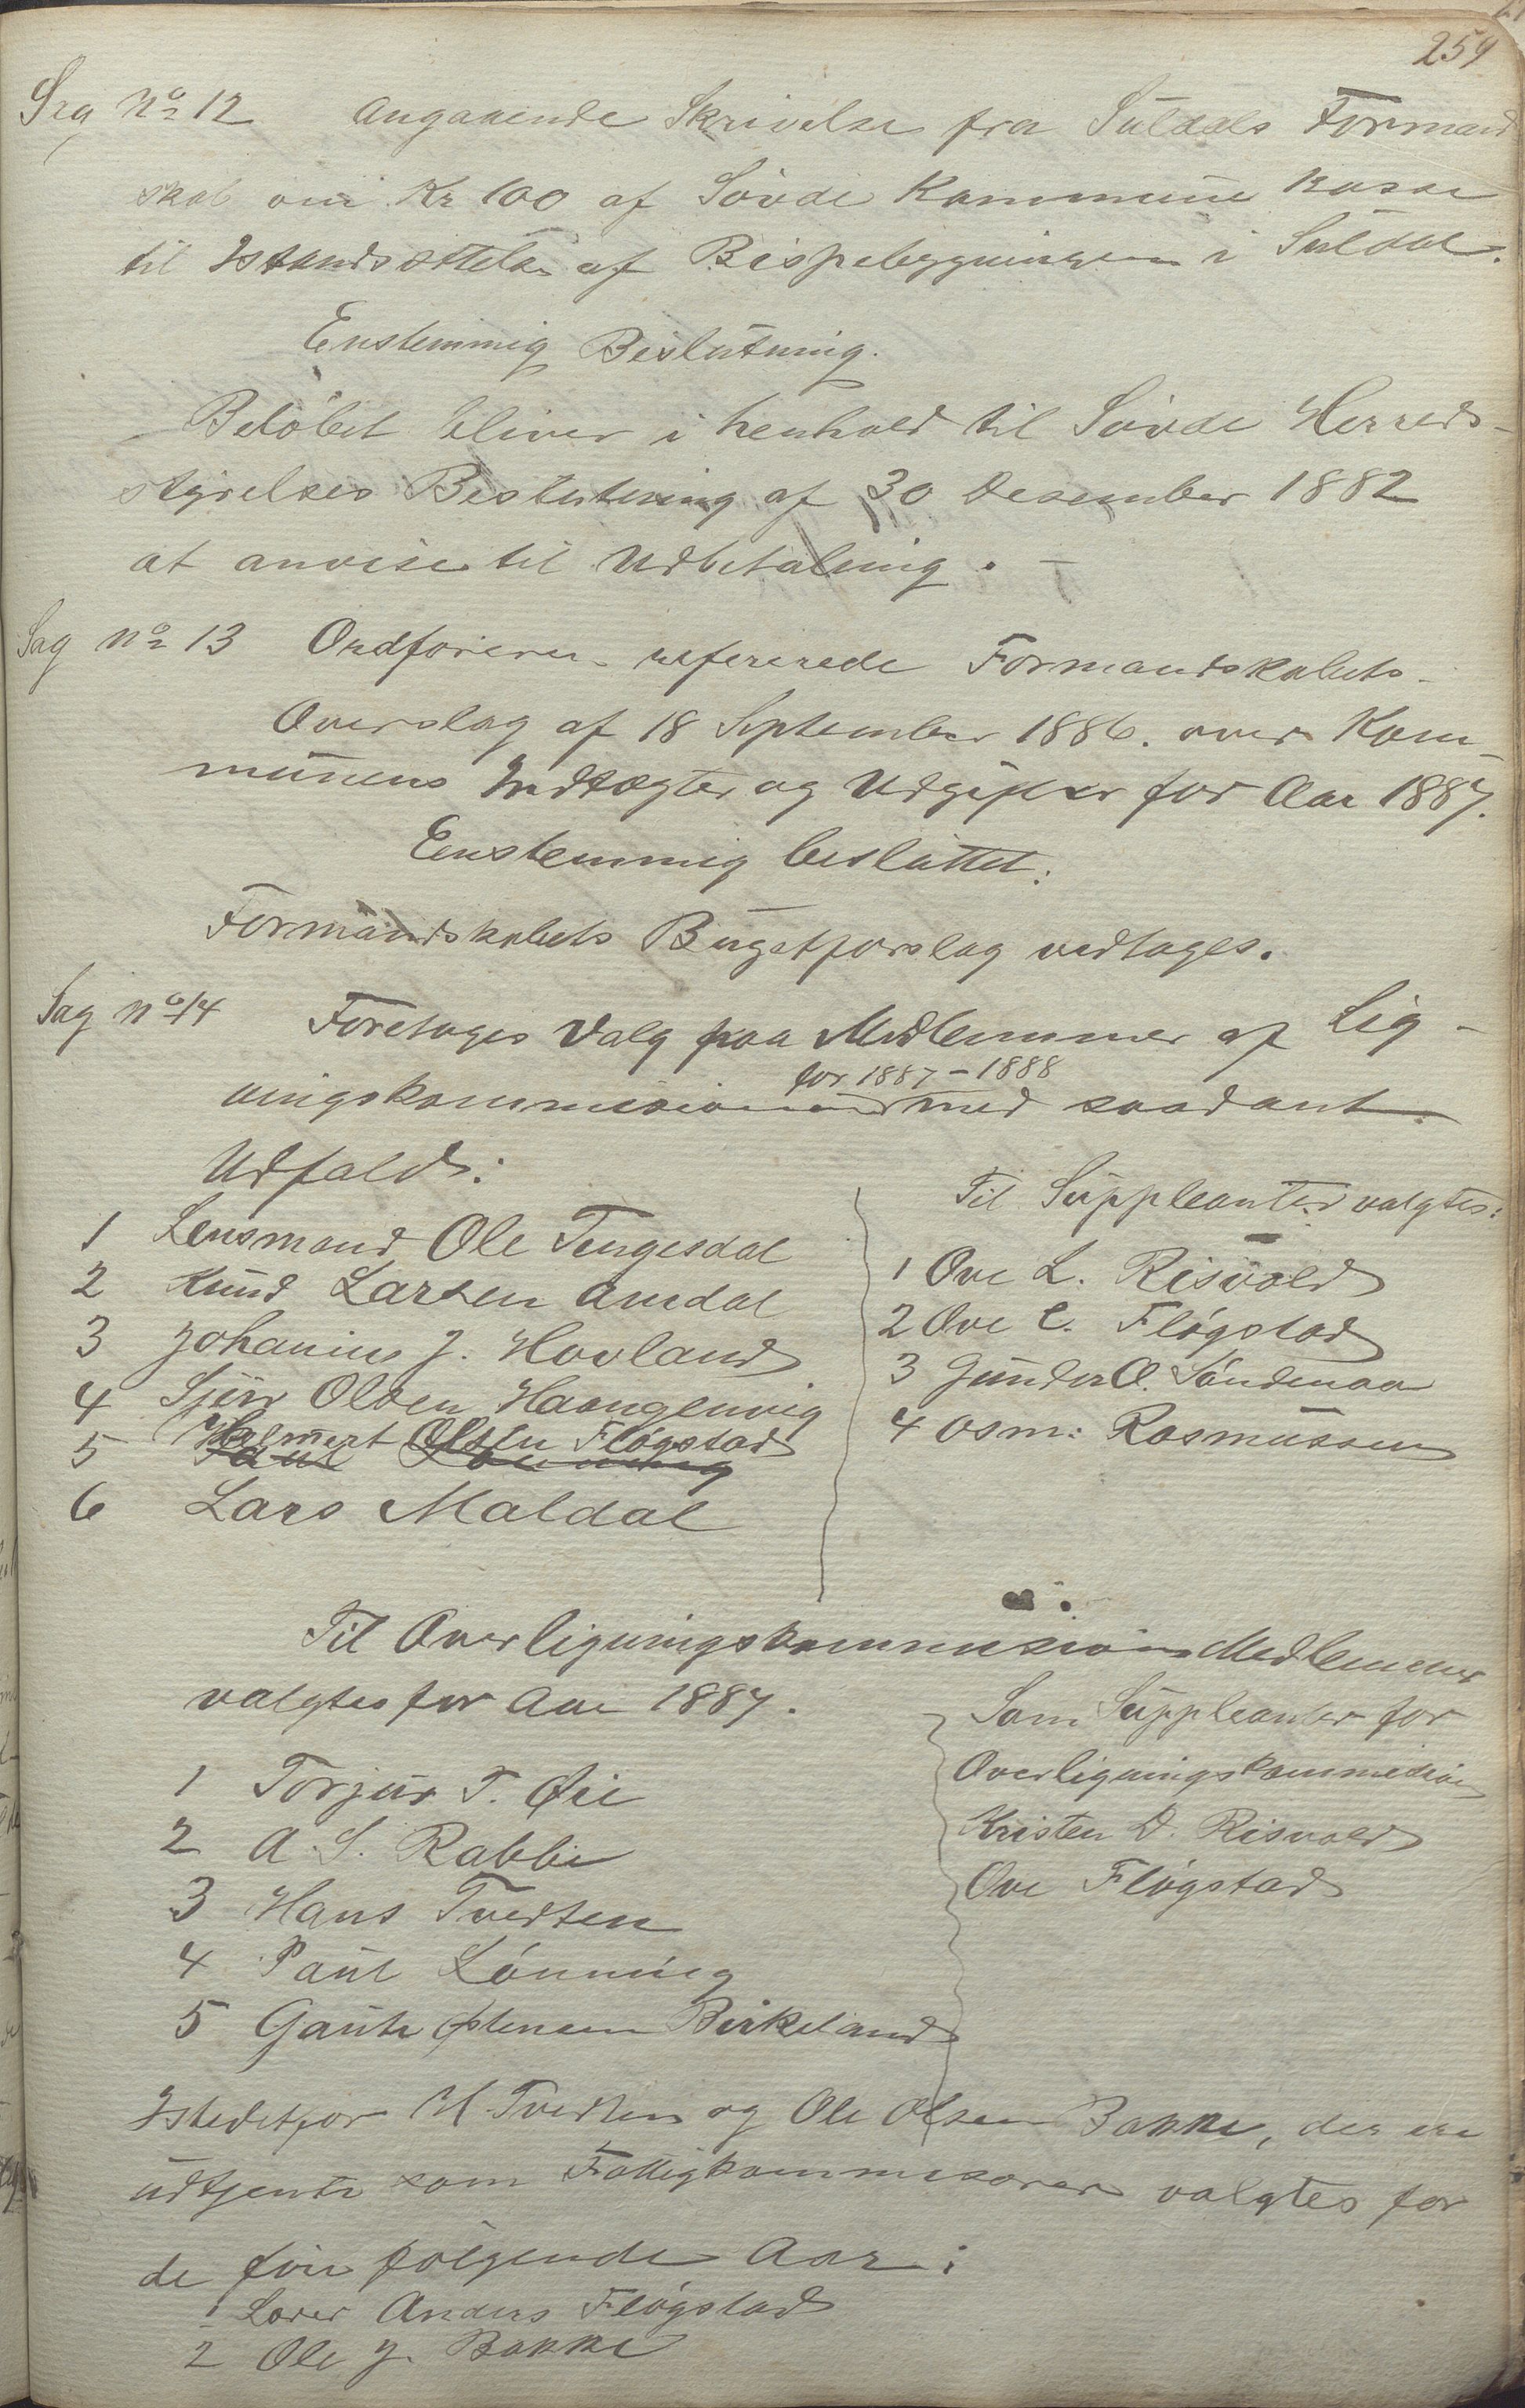 259
Sag No 12 Angaaende Skrivelse fra Suldals Formand
skab om Kr 100 af Søvde Kommune Kasse
til Istandsættelse af Bispebygningen i Suldal.
Enstemmig Beslutning.
Beløbet bliver i henhold til Søvde Herreds-
styrelses Beslutning af 30 Desember 1882
at anvise til Udbetaling.
Sag No 13 Ordføreren refererede Formandskabets
Overslag af 18 September 1886. over Kom-
munens Indtægter og Udgifter for Aar 1887.
Eenstemmig besluttet:
Formandskabets Bugetforslag vedtages.
Sag No 14 Foretages Valg paa Medlemmer af Lig-
ningskommisionen for 1887-1888 med saadant
Udfald:
1 Lensmand Ole Tengesdal
2 Knud Larsen Amdal
3 Johannes J. Hovland
4 Sjur Olsen Haangenvig
5 Helmert Olsen Fløgstad
Paul Lønning
6 Lars Maldal
Til Suppleanter valgtes:
1 Ove L. Risvold
2 Ove C. Fløgstad
3 Gunder O. Søndenaa
4 Osm: Rasmussen
Til Overligningskommision Medlemmer
valgtes for Aar 1887.
1 Torjus T. Øie
2 A. S. Rabbe
3 Hans Tvedten
4 Paul Lønning
5 Gaute Østensen Birkeland
Som Suppleanter for
Overligningskommision
Kristen D. Risvold
Ove Fløgstad
Istedetfor H. Tvedten og Ole Olsen Bakke, der ere
udtjente som Fattigkommisærer valgtes for
de fire følgende Aar:
1 Lærer Anders Fløgstad
2 Ole J. Bakke